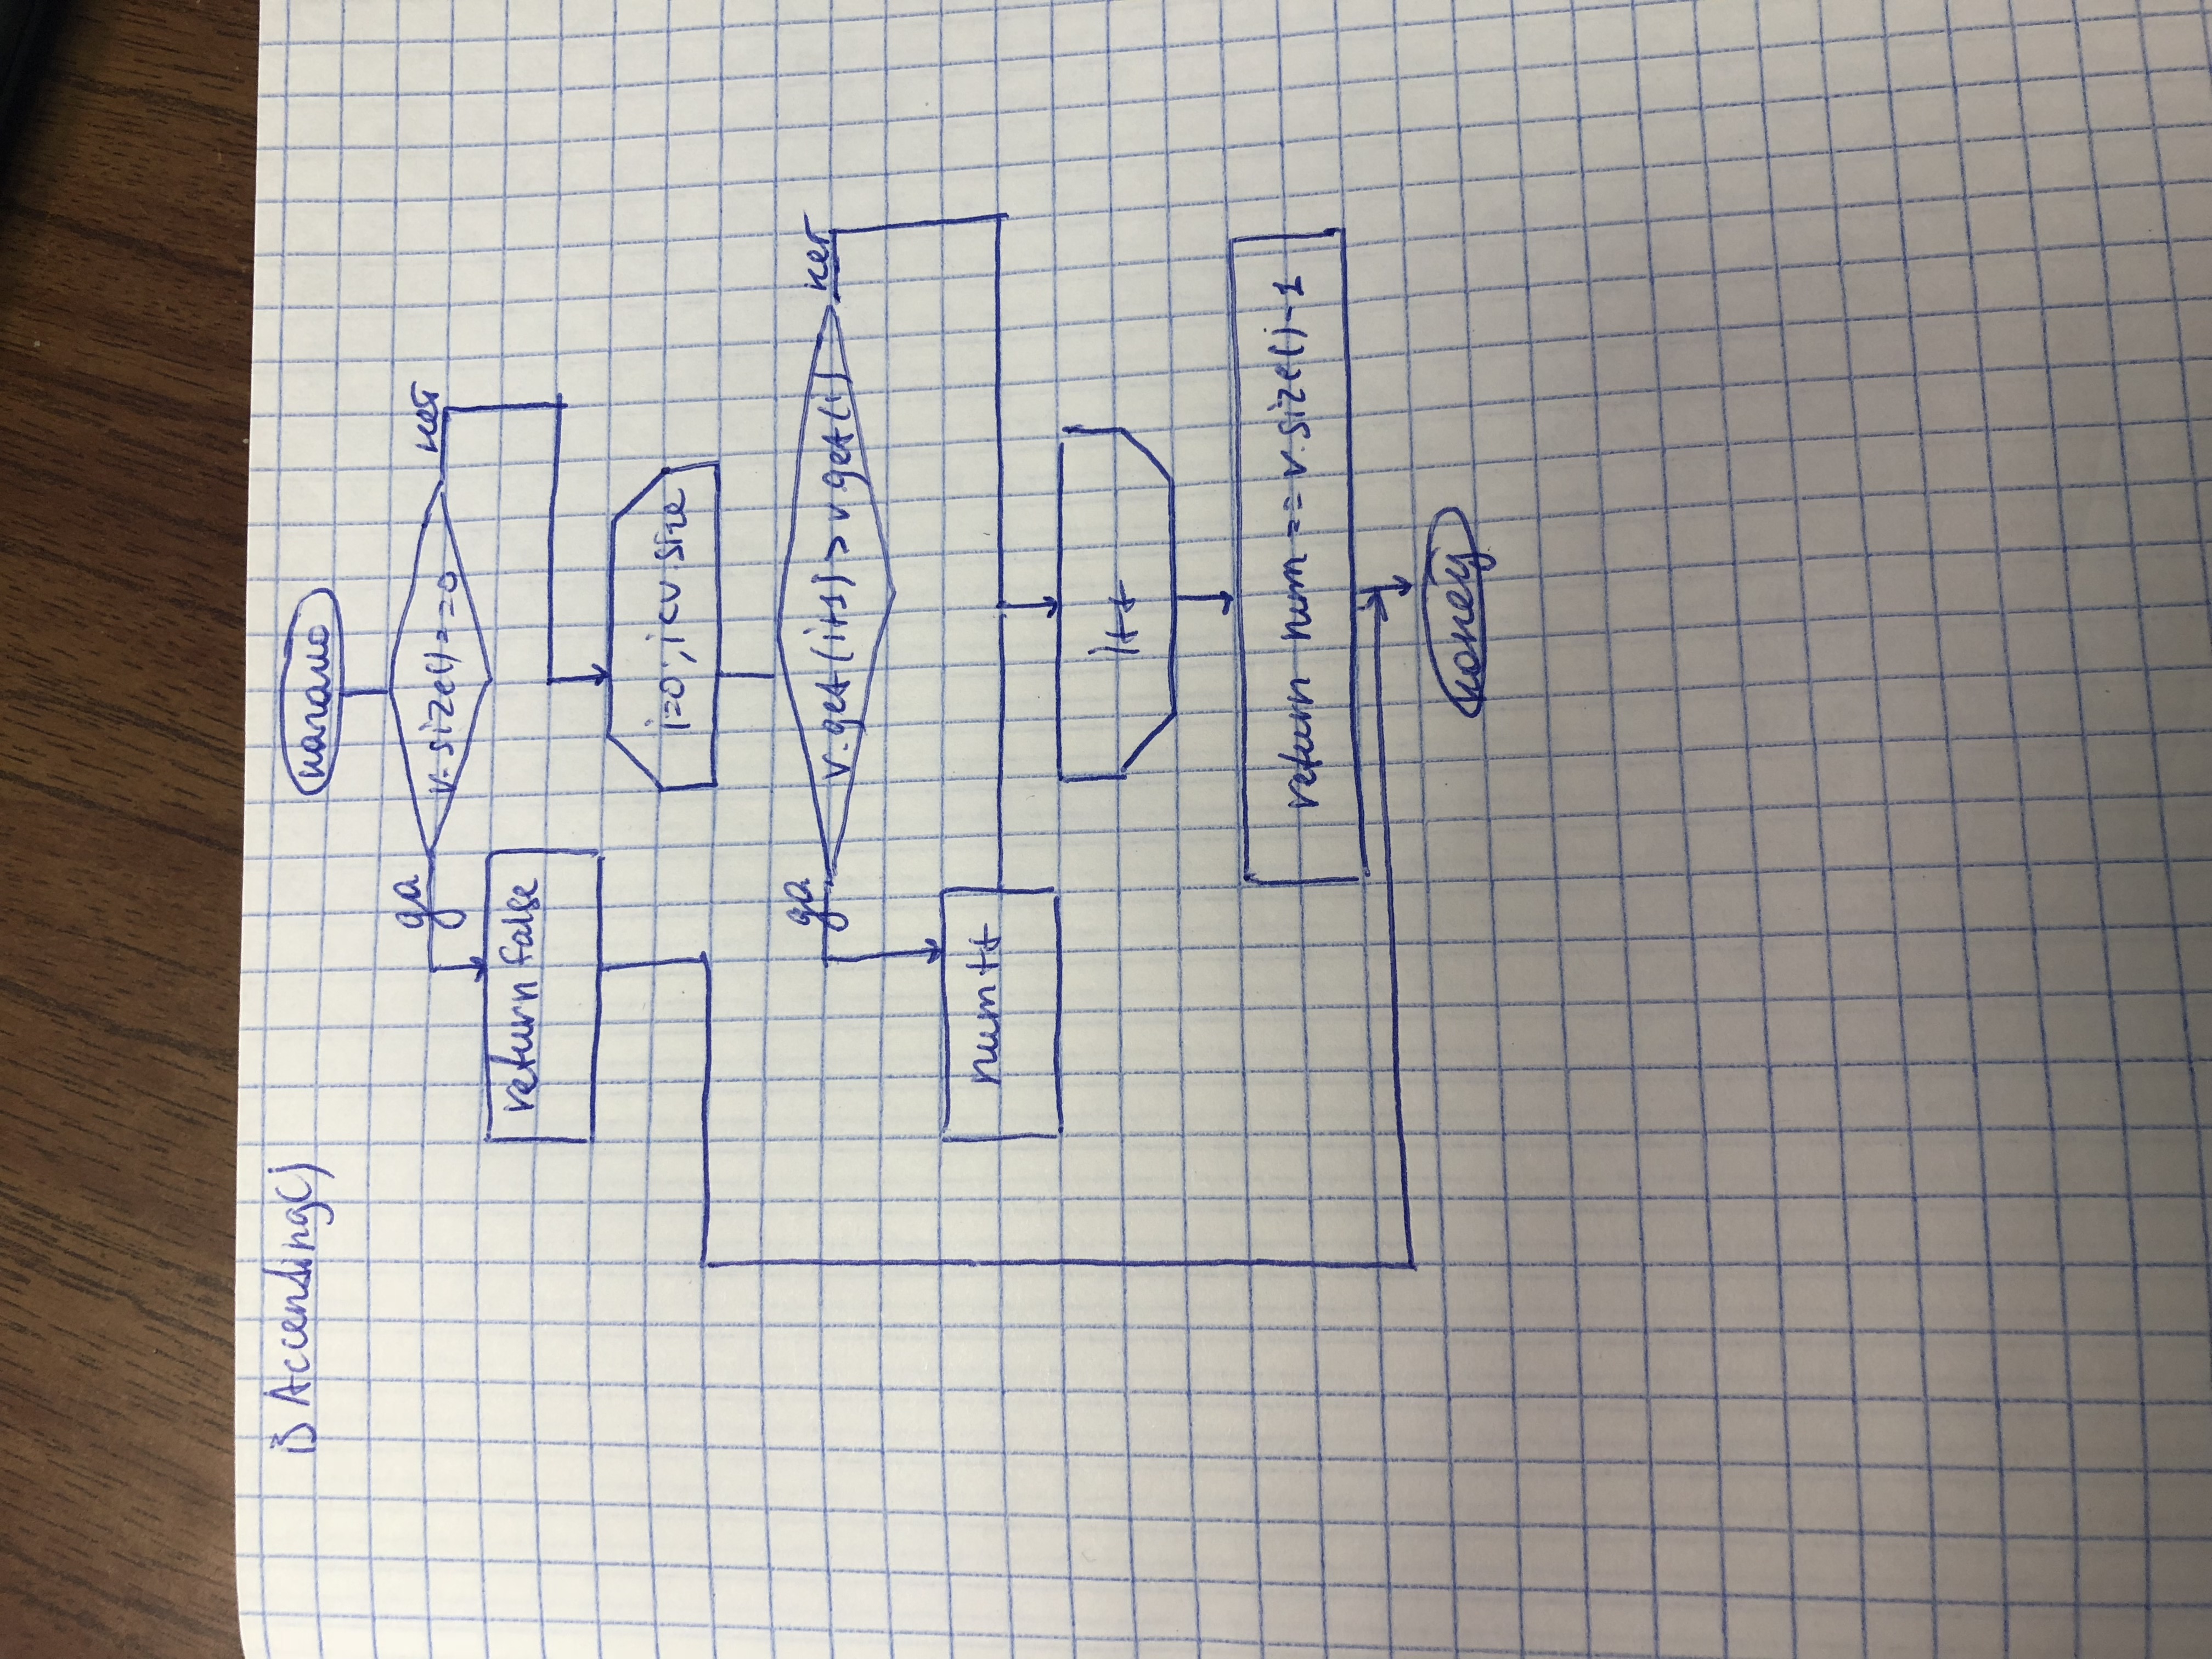 isAccending()
начало
да
v.size()==0
нет
return false
i=0; i<v.size
да
v.get(i+1)>v.get(i)
нет
num++
i++
return num == v.size()-1
конец